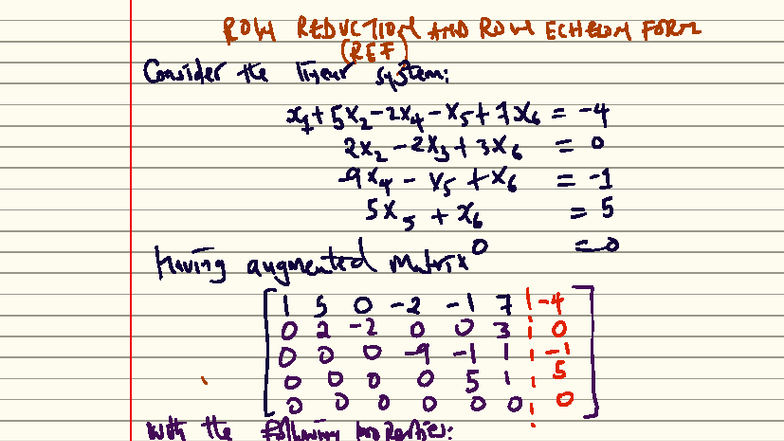 ROW REDUCTION AND ROW ECHELON FORM
(REF)
Consider the linear system:
x₁ + 5x₂ - 2x₄ - x₅ + 7x₆ = -4
2x₂ - 2x₃ + 3x₆ = 0
-9x₄ - x₅ + x₆ = -1
5x₅ + x₆ = 5
0 = 0
Having augmented matrix
1 5 0 -2 -1 7 | -4
0 2 -2 0 0 3 | 0
0 0 0 -9 -1 1 | -1
0 0 0 0 5 1 | 5
0 0 0 0 0 0 | 0
with the following properties: